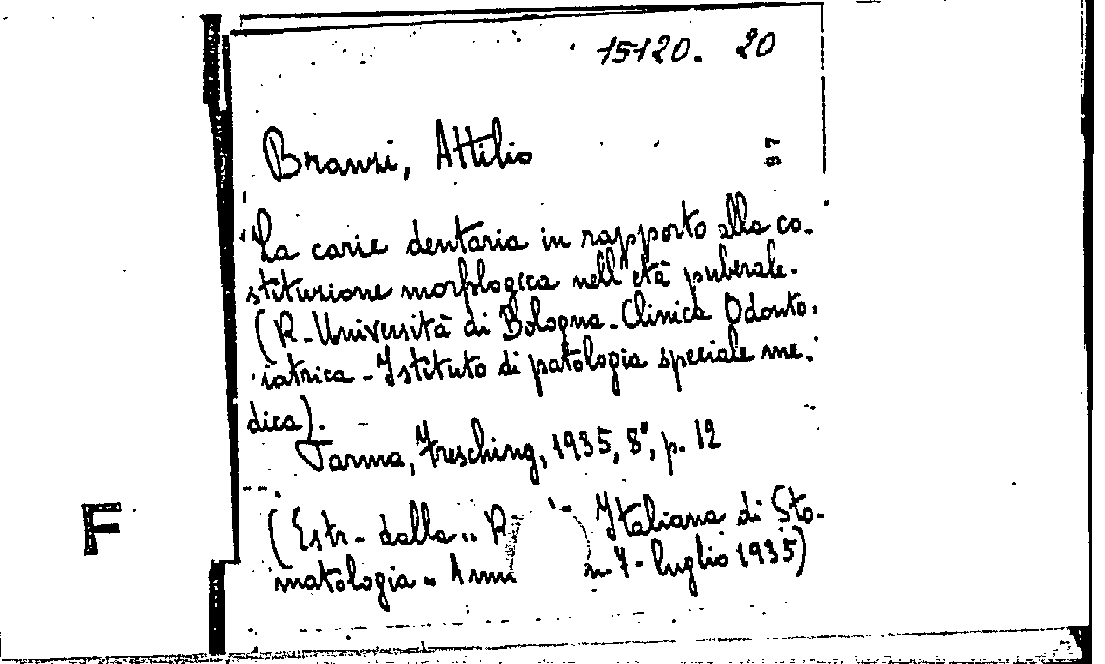 15120. 20
Branzi, Attilio
97
La carie dentaria in rapporto alla co-
stituzione morfologica nell'età puberale.
(R. Università di Bologna - Clinica Odonto-
iatrica - Istituto di patologia speciale me-
dica).
Parma, Fresching, 1935, 8°, p. 12
F
(Estr. dalla "R Italiana di Sto-
matologia" n. 7 - luglio 1935)